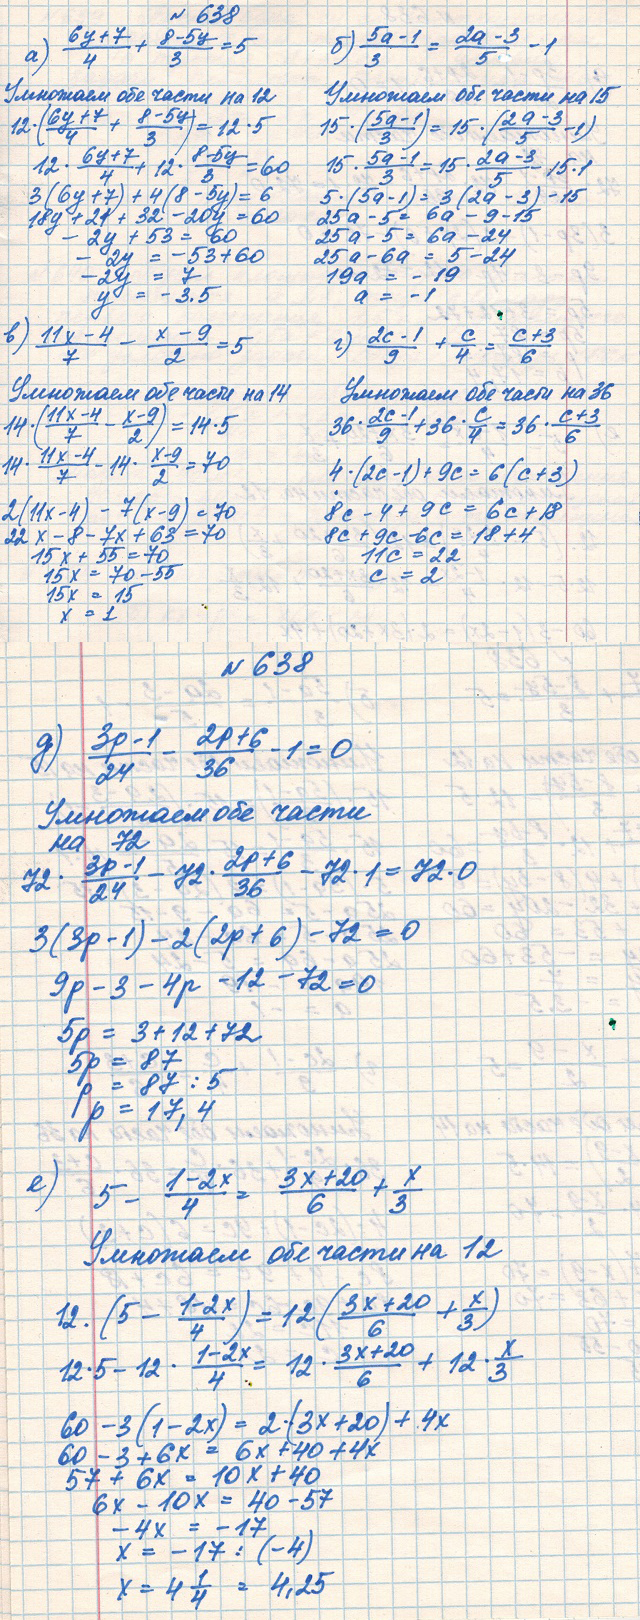 № 638
а) (6y+7)/4 + (8-5y)/3 = 5
Умножаем обе части на 12
12·((6y+7)/4 + (8-5y)/3) = 12·5
12·(6y+7)/4 + 12·(8-5y)/3 = 60
3(6y+7) + 4(8-5y) = 6
18y + 21 + 32 - 20y = 60
- 2y + 53 = 60
- 2y = -53+60
-2y = 7
y = -3.5
б) (5a-1)/3 = (2a-3)/5 - 1
Умножаем обе части на 15
15·((5a-1)/3) = 15·((2a-3)/5 - 1)
15·(5a-1)/3 = 15·(2a-3)/5 - 15·1
5·(5a-1) = 3(2a-3) - 15
25a - 5 = 6a - 9 - 15
25a - 5 = 6a - 24
25a - 6a = 5 - 24
19a = - 19
a = -1
в) (11x-4)/7 - (x-9)/2 = 5
Умножаем обе части на 14
14·((11x-4)/7 - (x-9)/2) = 14·5
14·(11x-4)/7 - 14·(x-9)/2 = 70
2(11x-4) - 7(x-9) = 70
22x - 8 - 7x + 63 = 70
15x + 55 = 70
15x = 70-55
15x = 15
x = 1
г) (2c-1)/9 + c/4 = (c+3)/6
Умножаем обе части на 36
36·(2c-1)/9 + 36·c/4 = 36·(c+3)/6
4·(2c-1) + 9c = 6(c+3)
8c - 4 + 9c = 6c + 18
8c + 9c - 6c = 18+4
11c = 22
c = 2
№ 638
д) (3p-1)/24 - (2p+6)/36 - 1 = 0
Умножаем обе части
на 72
72·(3p-1)/24 - 72·(2p+6)/36 - 72·1 = 72·0
3(3p-1) - 2(2p+6) - 72 = 0
9p - 3 - 4p - 12 - 72 = 0
5p = 3+12+72
5p = 87
p = 87 : 5
p = 17,4
е) 5 - (1-2x)/4 = (3x+20)/6 + x/3
Умножаем обе части на 12
12·(5 - (1-2x)/4) = 12((3x+20)/6 + x/3)
12·5 - 12·(1-2x)/4 = 12·(3x+20)/6 + 12·x/3
60 - 3(1-2x) = 2·(3x+20) + 4x
60 - 3 + 6x = 6x + 40 + 4x
57 + 6x = 10x + 40
6x - 10x = 40 - 57
-4x = -17
x = -17 : (-4)
x = 4 1/4 = 4,25